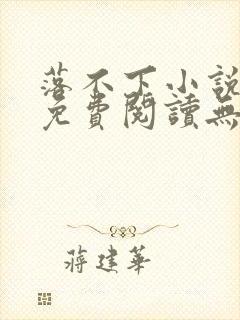 落不下小説
免費閱讀無
蔣建華